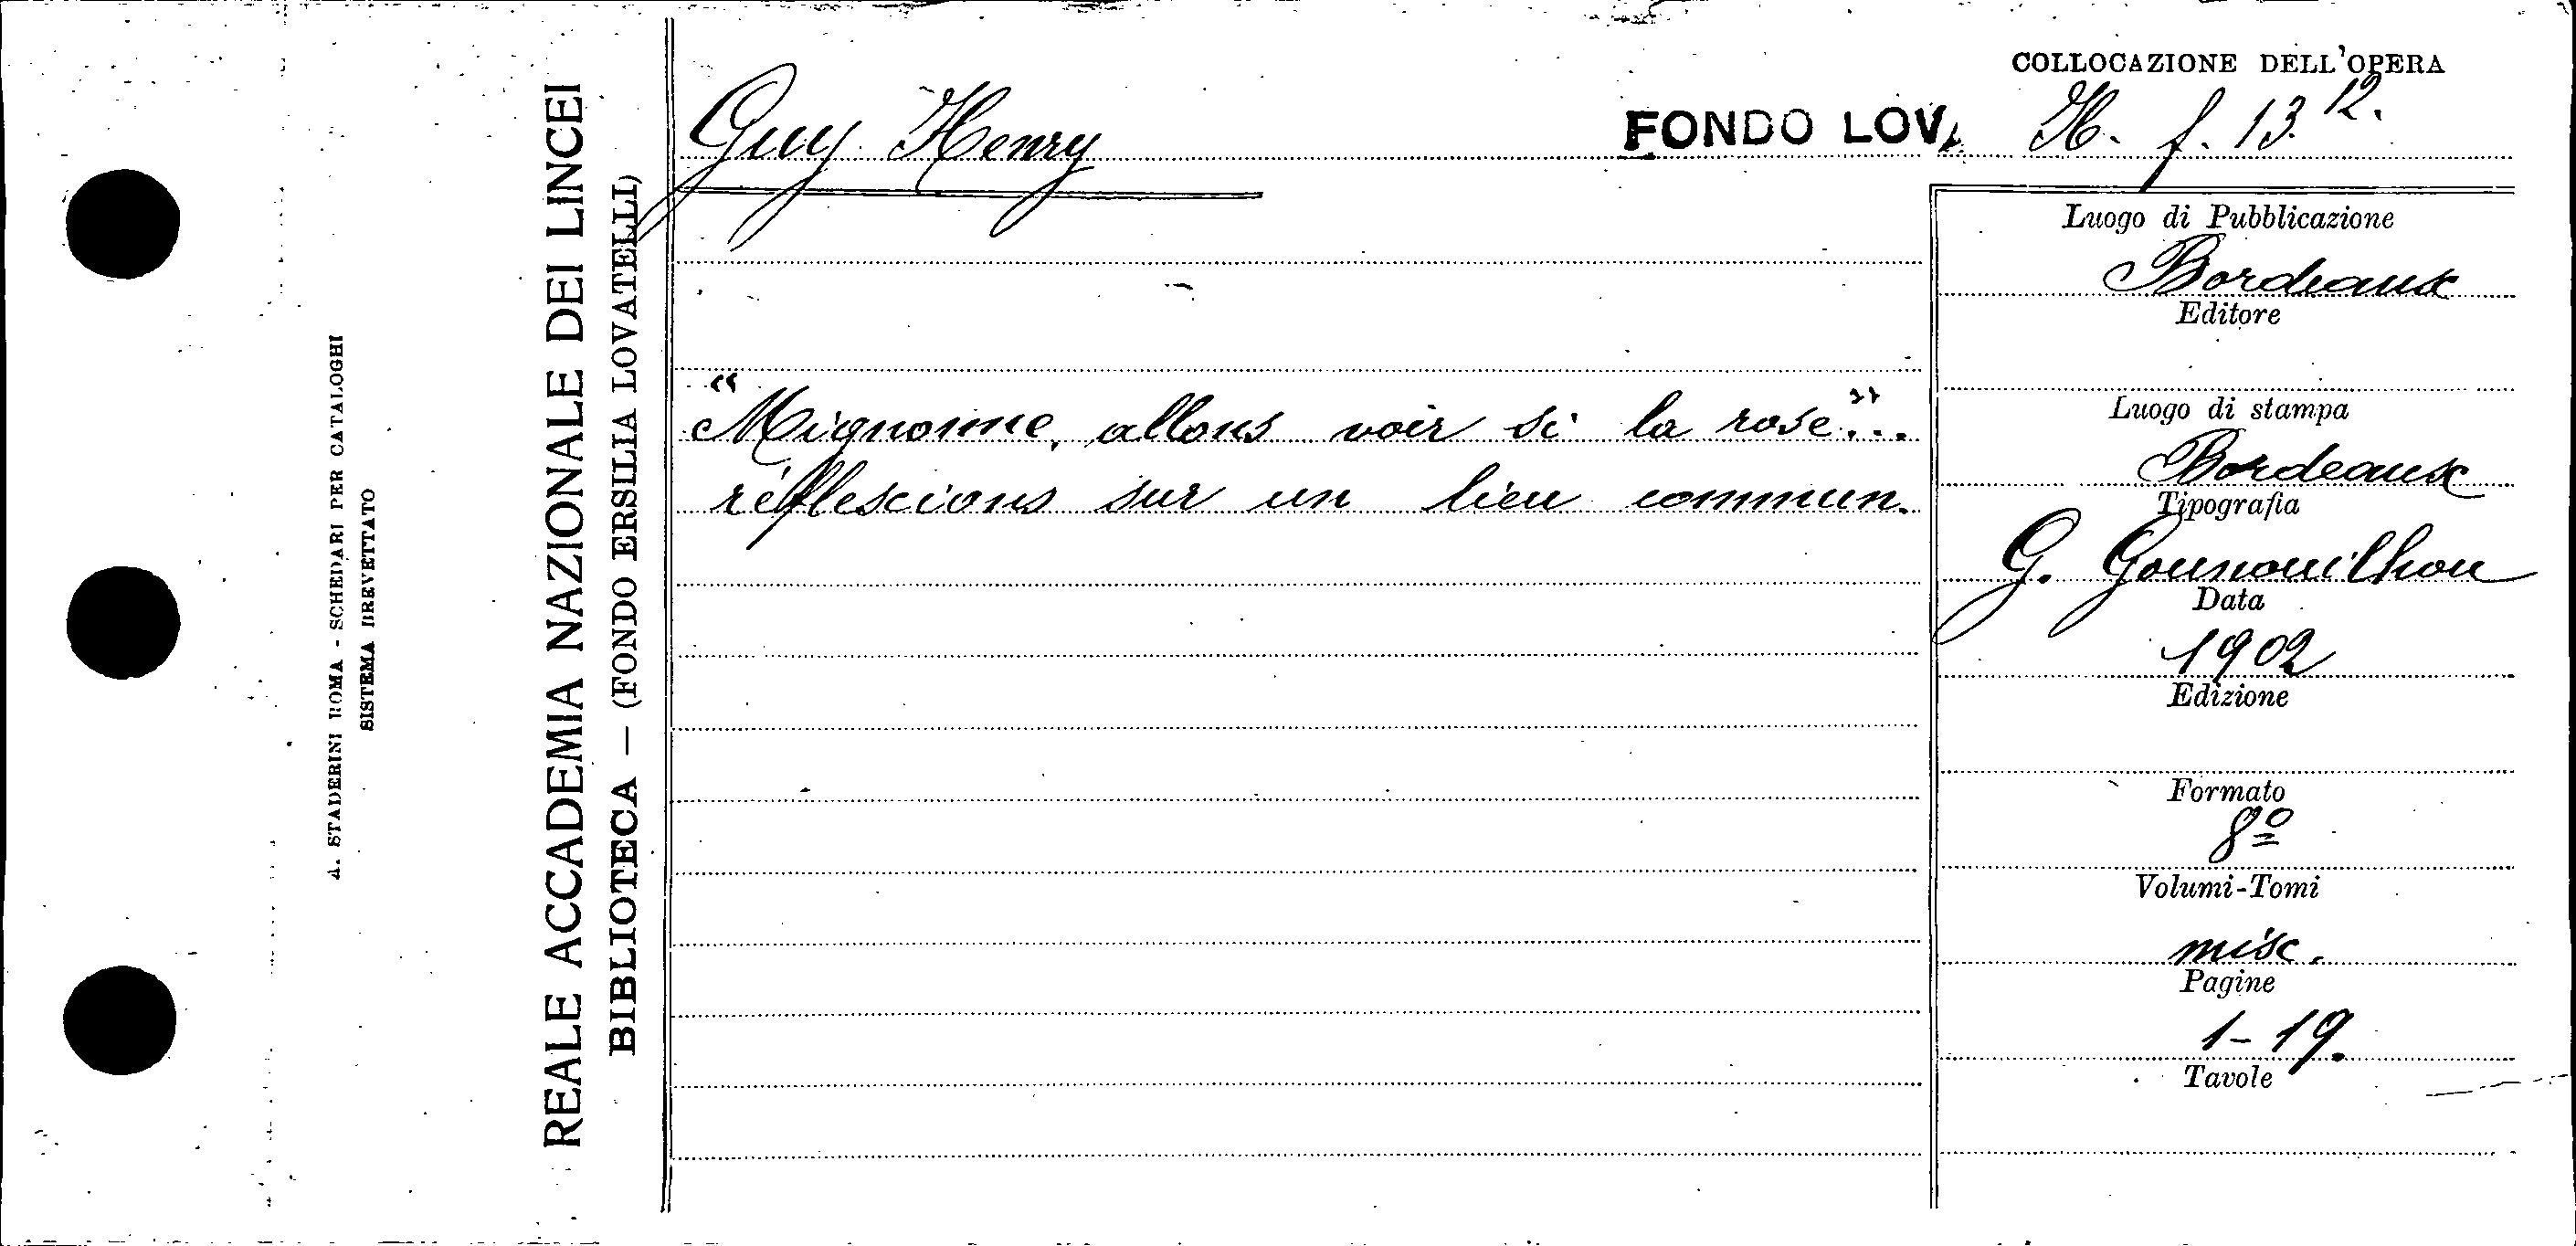 A. STADERINI ROMA - SCHEDARI PER CATALOGHI
SISTEMA BREVETTATO
REALE ACCADEMIA NAZIONALE DEI LINCEI
BIBLIOTECA — (FONDO ERSILIA LOVATELLI)
Guy Henry
"Mignonne, allons voir si la rose"...
réflexions sur un lieu commun.
COLLOCAZIONE DELL'OPERA
FONDO LOV. H. f. 13. 12.
Luogo di Pubblicazione
Bordeaux
Editore
Luogo di stampa
Bordeaux
Tipografia
G. Gounouilhou
Data
1902
Edizione
Formato
8º
Volumi-Tomi
misc.
Pagine
1-19.
Tavole